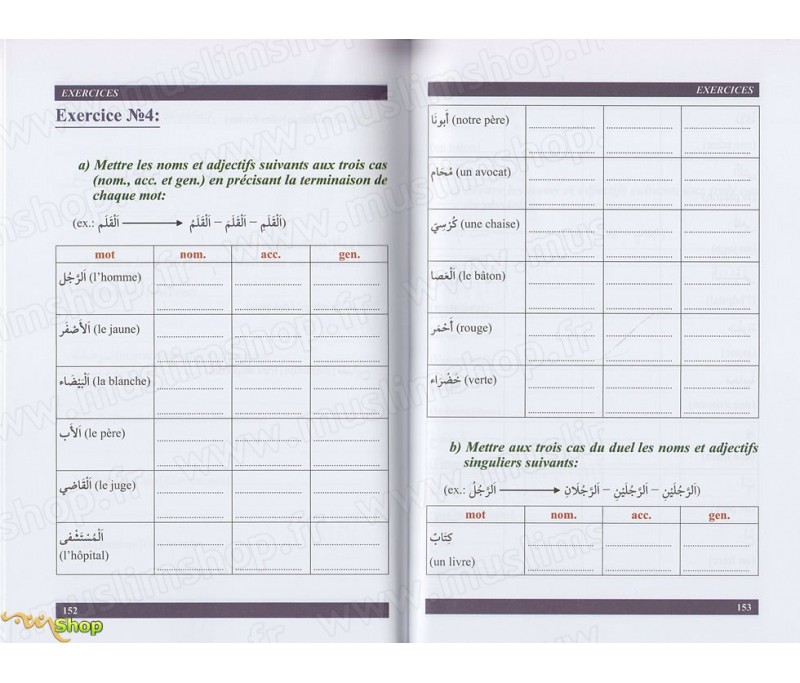 EXERCICES
Exercice №4:
a) Mettre les noms et adjectifs suivants aux trois cas
(nom., acc. et gen.) en précisant la terminaison de
chaque mot:
(ex.: اَلْقَلَم ⟶ اَلْقَلَمُ – اَلْقَلَمَ – اَلْقَلَمِ)
mot nom. acc. gen.
اَلرَّجُل (l'homme)
اَلأَصْفَر (le jaune)
اَلْبَيْضَاء (la blanche)
اَلأَب (le père)
اَلْقَاضِي (le juge)
اَلْمُسْتَشْفَى
(l'hôpital)
152
Shop
EXERCICES
أَبُونَا (notre père)
مُحَام (un avocat)
كُرْسِيّ (une chaise)
اَلْعَصَا (le bâton)
أَحْمَر (rouge)
خَضْرَاء (verte)
b) Mettre aux trois cas du duel les noms et adjectifs
singuliers suivants:
(ex.: اَلرَّجُلُ ⟶ اَلرَّجُلَانِ – اَلرَّجُلَيْنِ – اَلرَّجُلَيْنِ)
mot nom. acc. gen.
كِتَابٌ
(un livre)
153
www.muslimshop.fr